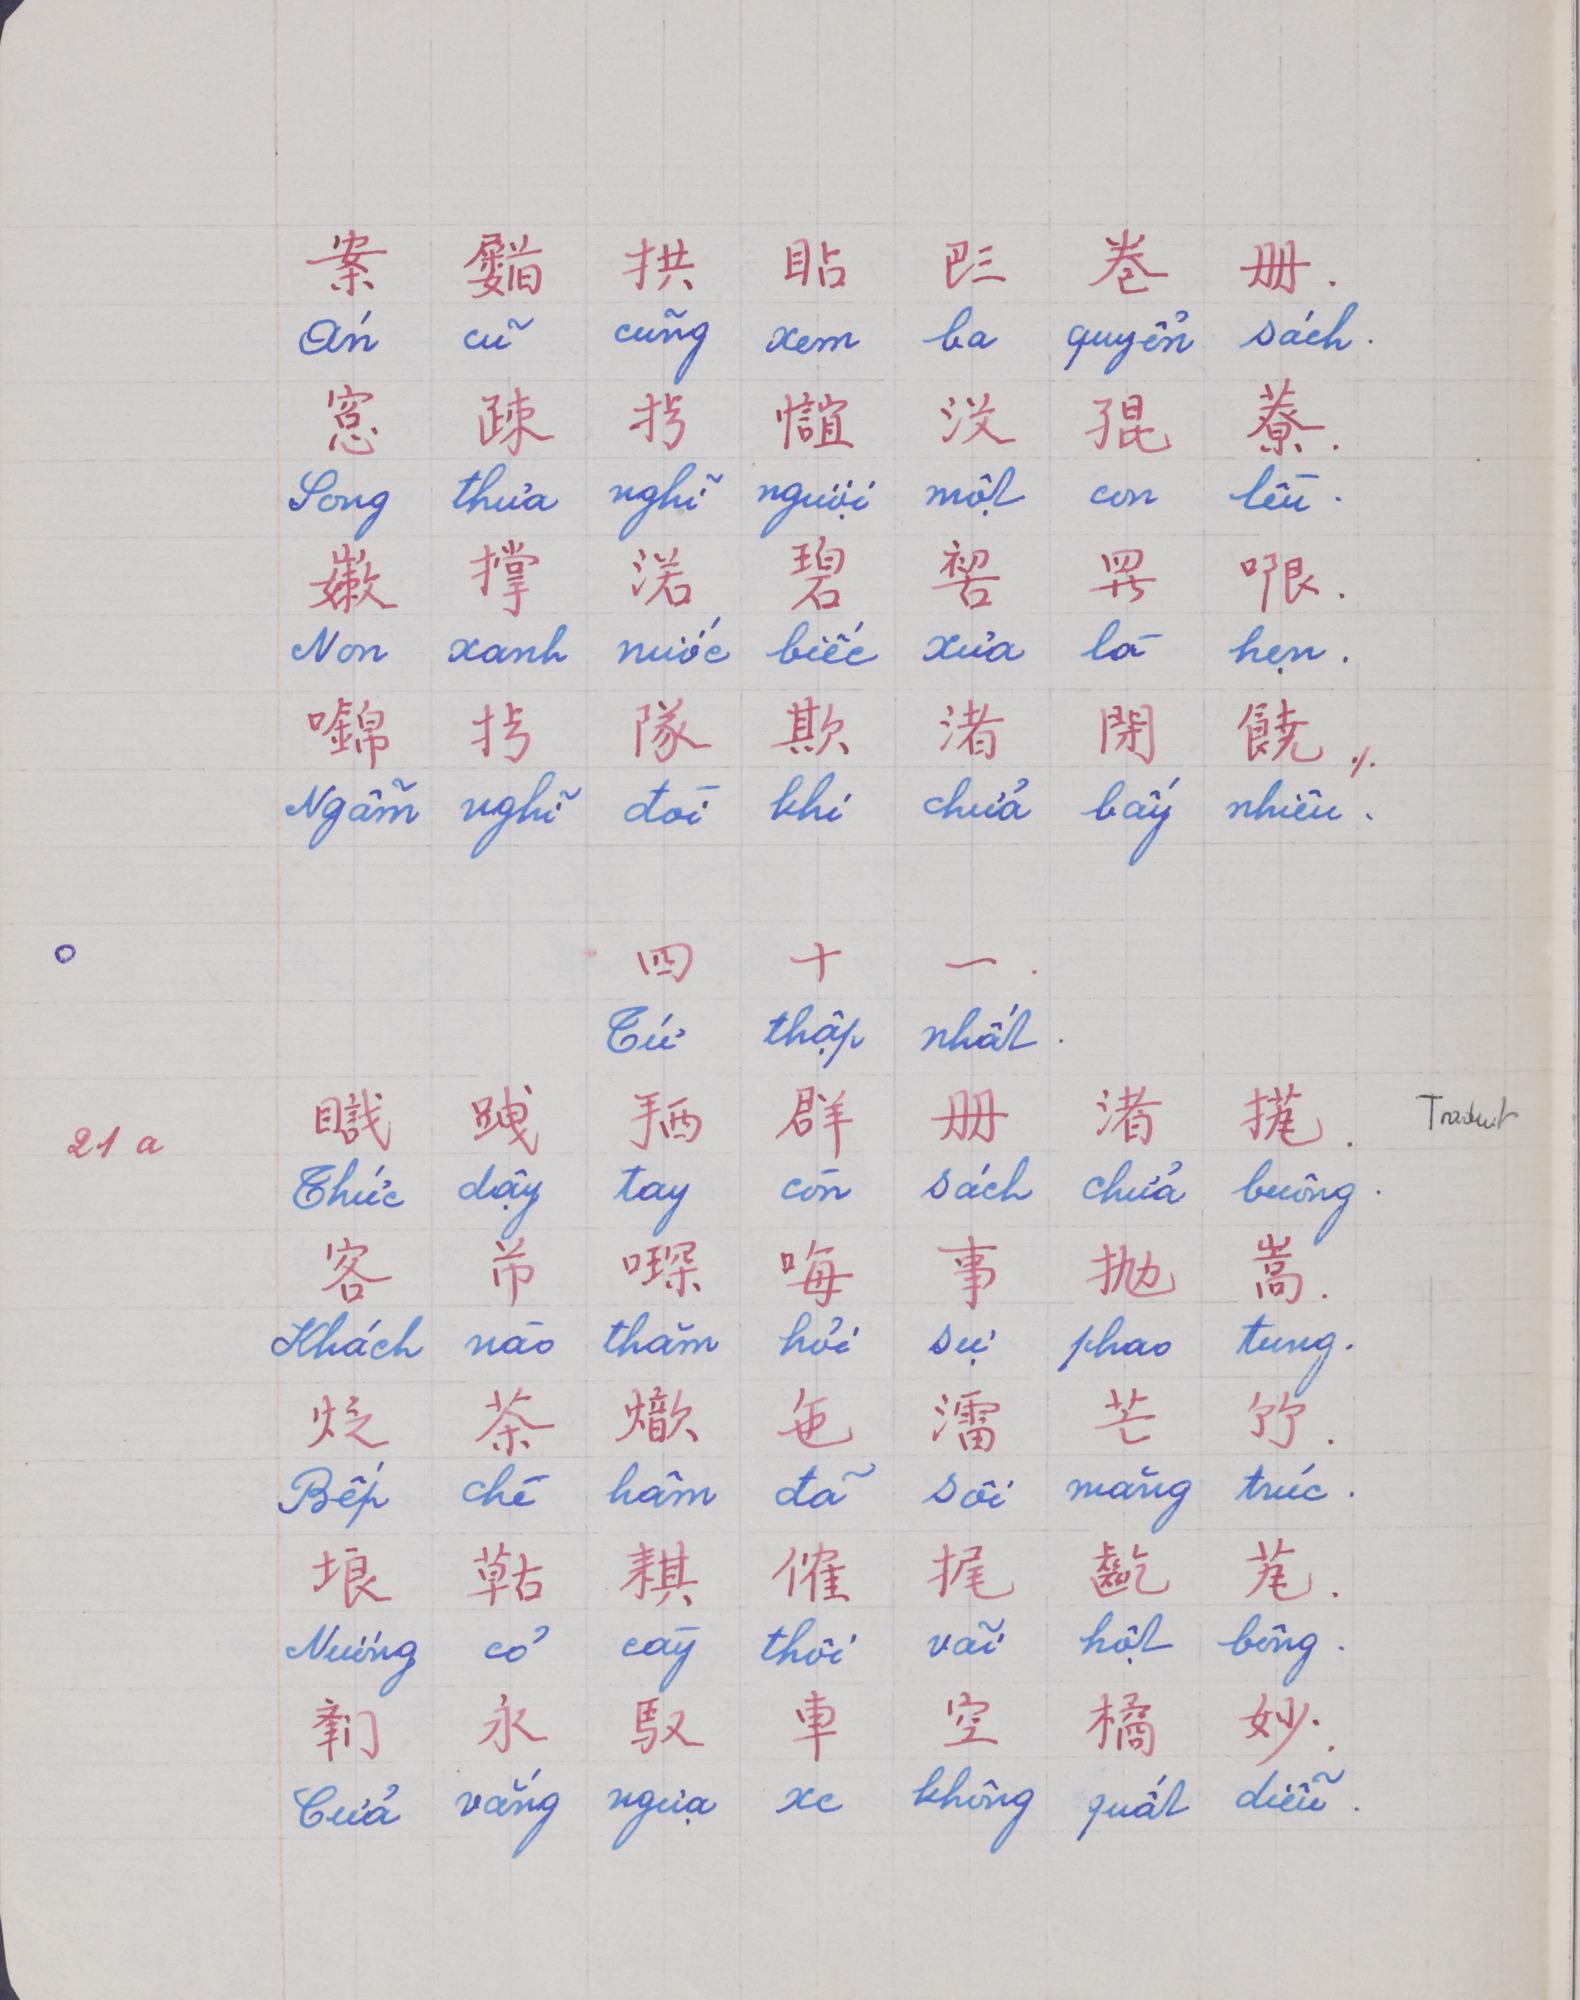 案 𫇰 拱 貼 𠀧 卷 册.
Án cũ cũng xem ba quyển sách.
窓 疎 𢪀 㦂 没 猑 藔.
Song thưa nghỉ người một con lều.
嫩 撑 渃 碧 𠸗 𱺵 哏.
Non xanh nước biếc xưa là hẹn.
唫 𢪀 隊 欺 渚 閉 饒 ./.
Ngẫm nghĩ đòi khi chửa bấy nhiêu.
四 十 一.
Tứ thập nhất.
21 a 𥅞 跩 𢬣 群 册 渚 㧼. Traduit
Thức dậy tay còn sách chửa buông.
客 芇 嘇 晦 事 抛 嵩.
Khách nào thăm hỏi sự phao tung.
𤇮 茶 歆 㐌 㵢 芒 竹.
Bếp chè hâm đã sôi măng trúc.
埌 𦹵 𦓿 催 捤 齕 芃.
Nương cỏ cày thôi vãi hột bông.
𨷶 永 馭 車 空 橘 妙.
Cửa vắng ngựa xe không quất diễu.